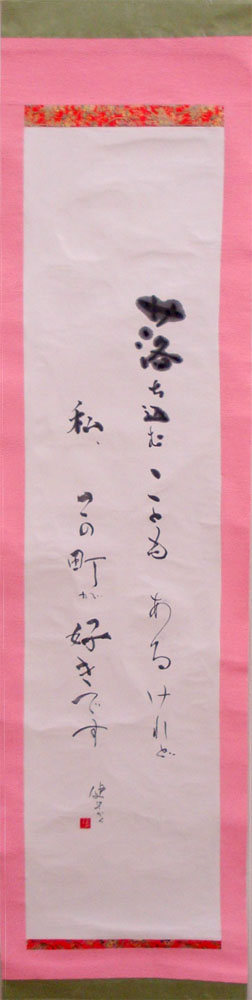 落ち込むこともあるけれど
私、この町が好きです